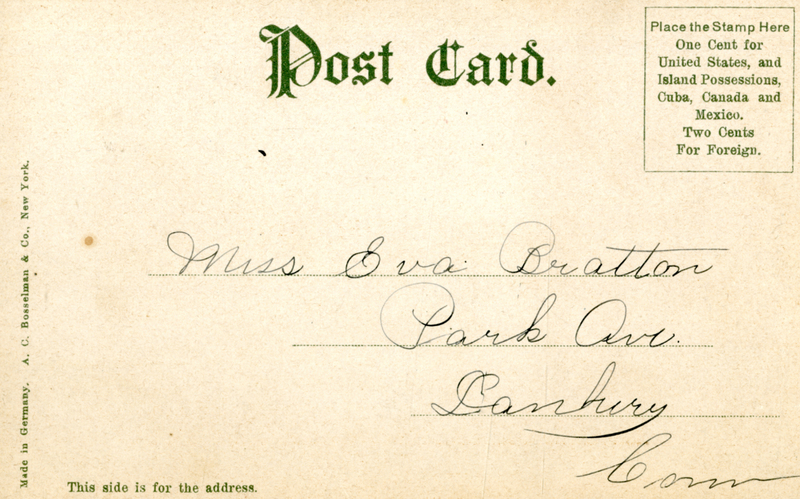 Post Card.
Place the Stamp Here
One Cent for
United States, and
Island Possessions,
Cuba, Canada and
Mexico.
Two Cents
For Foreign.
Miss Eva Bratton
Park Ave.
Danbury
Conn
This side is for the address.
Made in Germany. A. C. Bosselman & Co., New York.